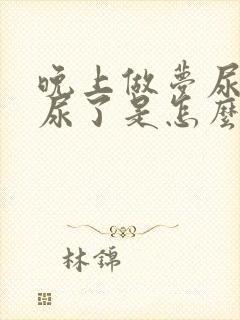 晚上做夢尿
尿了是怎麼
林錦